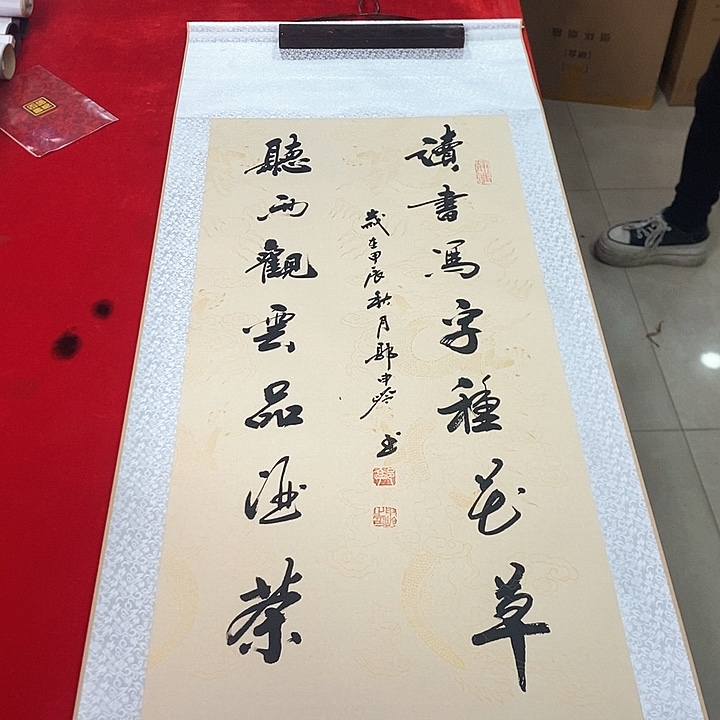 讀書寫字種花草
歲在甲辰秋月
聽雨觀雲品酒茶